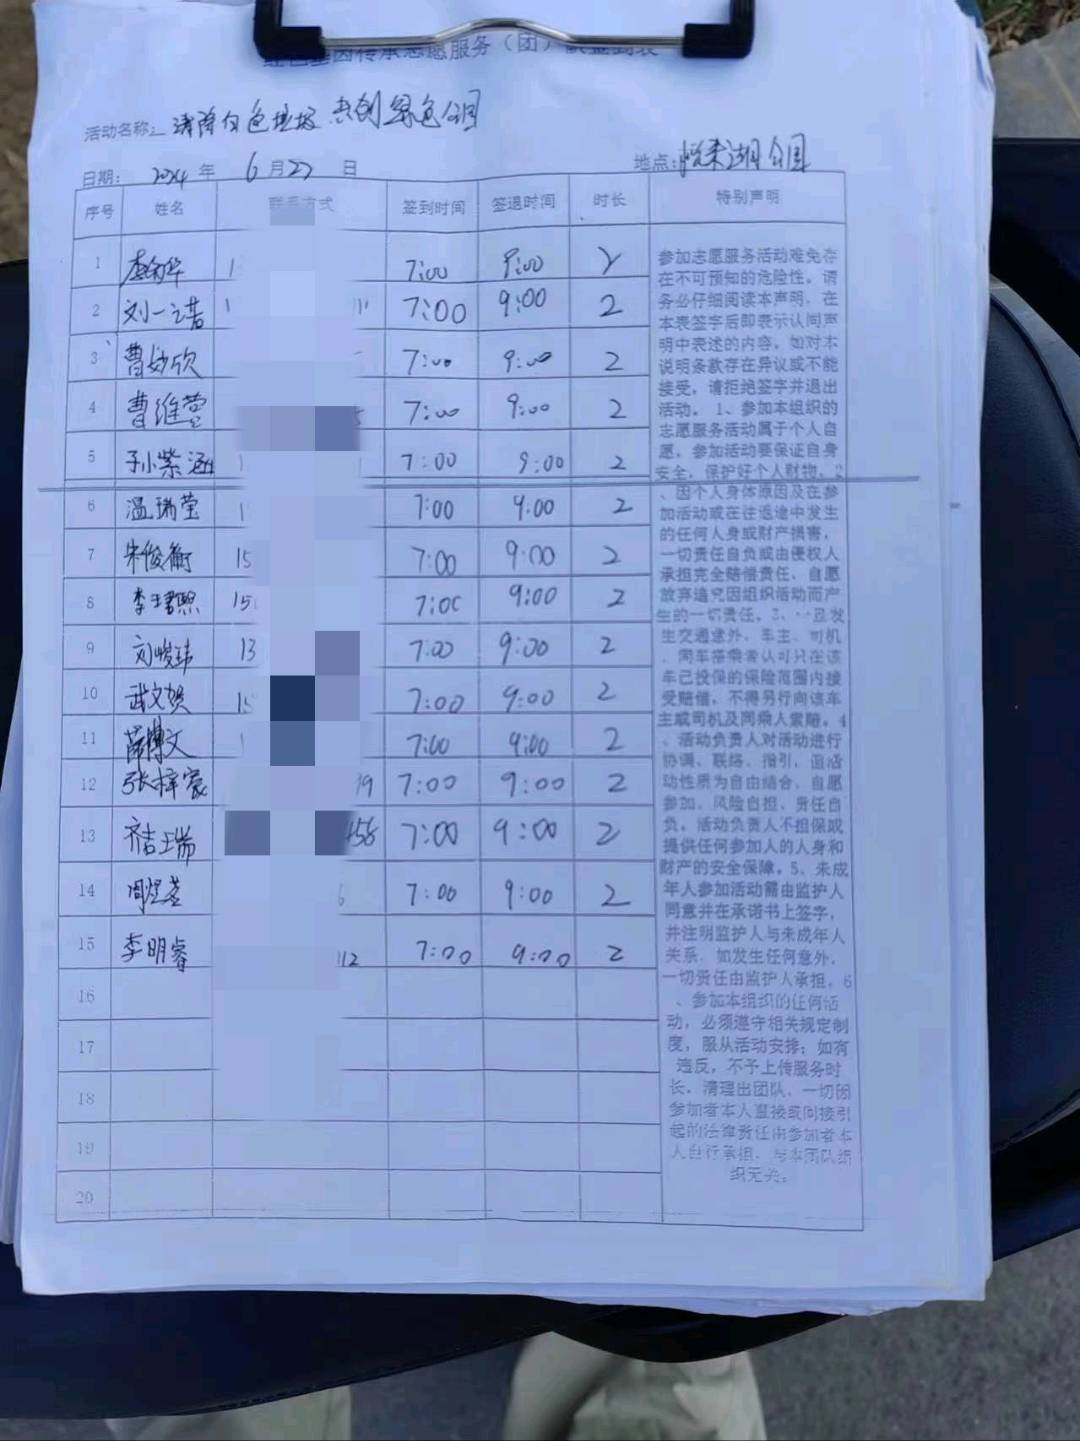 红色基因传承志愿服务(团)队签到表
活动名称: 清除白色垃圾 共创绿色公园
日期: 2024 年 6 月 22 日 地点: 悦来湖公园
序号 姓名 联系方式 签到时间 签退时间 时长 特别声明
1 7:00 9:00 2
2 刘一诺 7:00 9:00 2
3 曹妙欣 7:00 9:00 2
4 曹维萱 7:00 9:00 2
5 孙紫涵 7:00 9:00 2
6 温瑞莹 7:00 9:00 2
7 朱俊衡 15 7:00 9:00 2
8 李珺熙 15 7:00 9:00 2
9 刘峻玮 13 7:00 9:00 2
10 武文贺 7:00 9:00 2
11 薛博文 7:00 9:00 2
12 张梓豪 7:00 9:00 2
13 齐喆瑞 456 7:00 9:00 2
14 周煜茗 7:00 9:00 2
15 李明睿 112 7:00 9:00 2
16
17
18
19
20
参加志愿服务活动难免存
在不可预知的危险性。请
务必仔细阅读本声明,在
本表签字后即表示认同声
明中表述的内容。如对本
说明条款存在异议或不能
接受,请拒绝签字并退出
活动。1、参加本组织的
志愿服务活动属于个人自
愿,参加活动要保证自身
安全,保护好个人财物。2
、因个人身体原因及在参
加活动或在往返途中发生
的任何人身或财产损害,
一切责任自负或由侵权人
承担完全赔偿责任,自愿
放弃追究因组织活动而产
生的一切责任。3、一旦发
生交通意外,车主、司机
、同车搭乘者认可只在该
车已投保的保险范围内接
受赔偿,不得另行向该车
主或司机及同乘人索赔。4
、活动负责人对活动进行
协调、联络、指引,但活
动性质为自由结合、自愿
参加、风险自担、责任自
负。活动负责人不担保或
提供任何参加人的人身和
财产的安全保障。5、未成
年人参加活动需由监护人
同意并在承诺书上签字,
并注明监护人与未成年人
关系,如发生任何意外,
一切责任由监护人承担。6
、参加本组织的任何活
动,必须遵守相关规定制
度,服从活动安排;如有
违反,不予上传服务时
长,清理出团队,一切因
参加者本人直接或间接引
起的法律责任由参加者本
人自行承担,与本团队组
织无关。